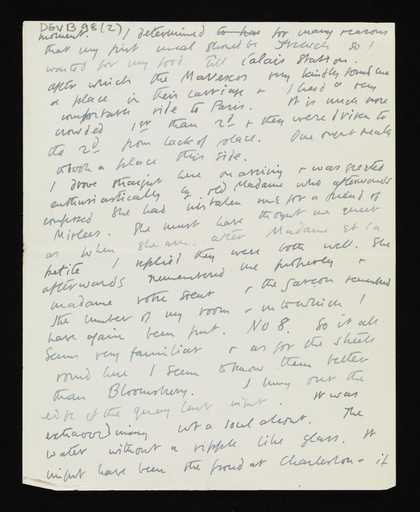 DGVB 98 (2)
moment. I determined to have for many reasons
that my first meal should be French so I
waited for my food till Calais Station.
after which the very kindly found me
a place in their carriage & I had a very
comfortable ride to Paris. It is much more
crowded 1st than 2nd & they were driven to
the 2nd from lack of place. One must really
book a place this side.
I drove straight here on arriving & was greeted
enthusiastically by old Madame who afterwards
confessed she had mistaken me for a friend of
She must have thought me queer
as when she after Madame et la
petite I replied they were both well. She
afterwards remembered me properly &
madame votre soeur & the garcon remembered
the number of my room & into which I
have again been put. No 8. So it all
seems very familiar & as for the streets
round here I seem to know them better
than Bloomsbury. I hung out the
edge of the quay last night. It was
extraordinary not a soul about. The
water without a ripple like glass. It
might have been the pond at Charleston & if